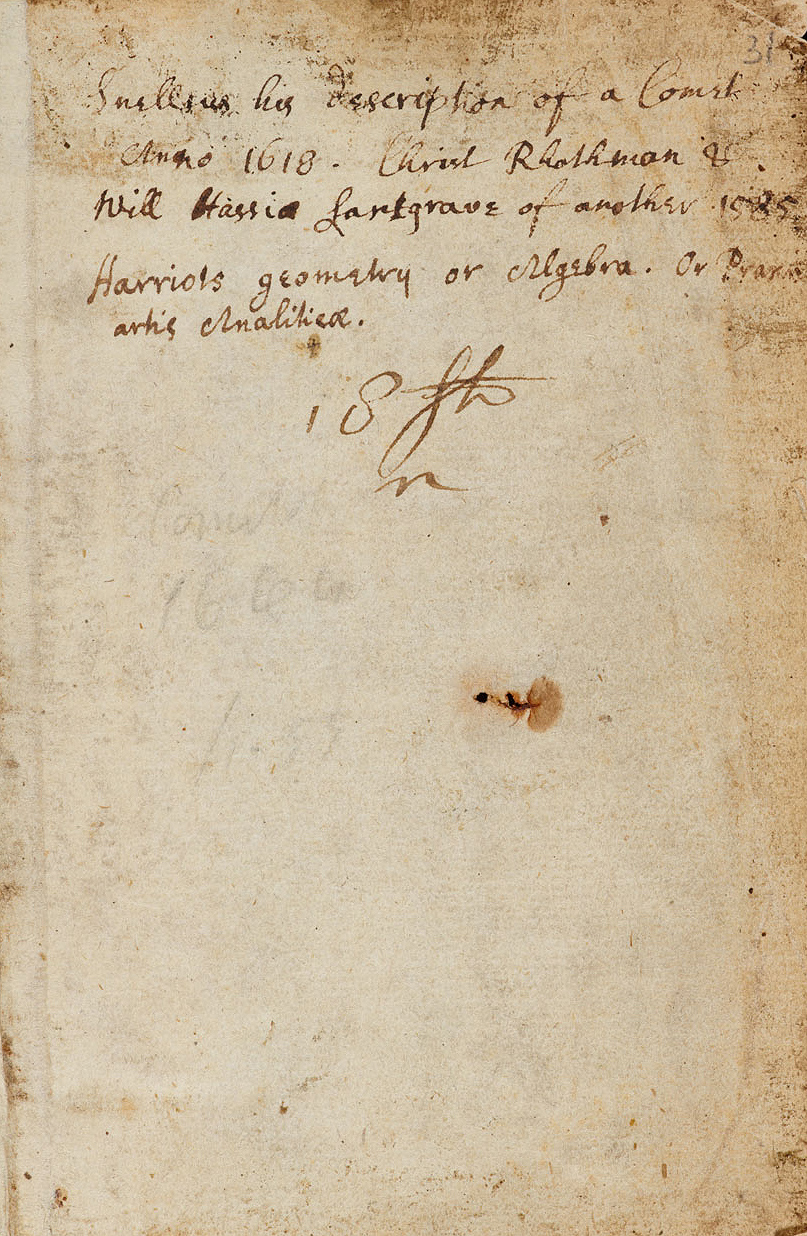 31
Snellius his description of a Comet
Anno 1618. Christ Rhothman &.
Will Hassiæ Lantgrave of another 1585
Harriots geometry or Algebra. Or
artis Analiticæ.
18